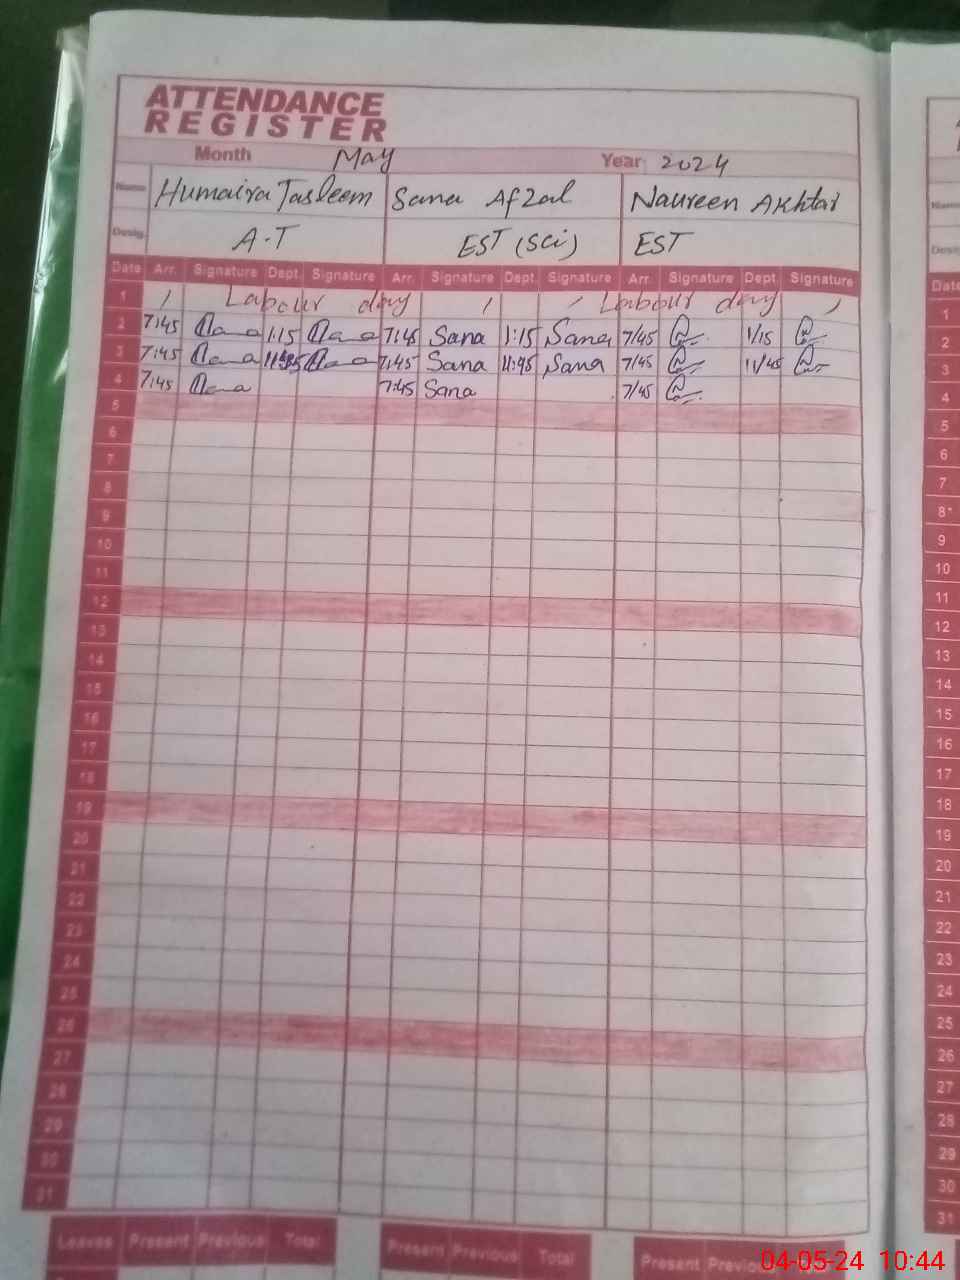 ATTENDANCE
REGISTER
Month May Year 2024
Name Humaira Tasleem Sana Afzal Naureen Akhtar
Desig. A-T EST (Sci) EST
Date Arr. Signature Dept. Signature Arr. Signature Dept. Signature Arr. Signature Dept. Signature
1 Labour day Labour day
2 7:45 1:15 7:45 Sana 1:15 Sana 7/45 1/15
3 7:45 7:45 Sana 11:45 Sana 7/45 11/45
4 7:45 7:45 Sana 7/45
5
6
7
8
9
10
11
12
13
14
15
16
17
18
19
20
21
22
23
24
25
26
27
28
29
30
31
Leaves Present Previous Total Present Previous Total Present
Date
1
2
3
4
5
6
7
8
9
10
11
12
13
14
15
16
17
18
19
20
21
22
23
24
25
26
27
28
29
30
31
04-05-24 10:44